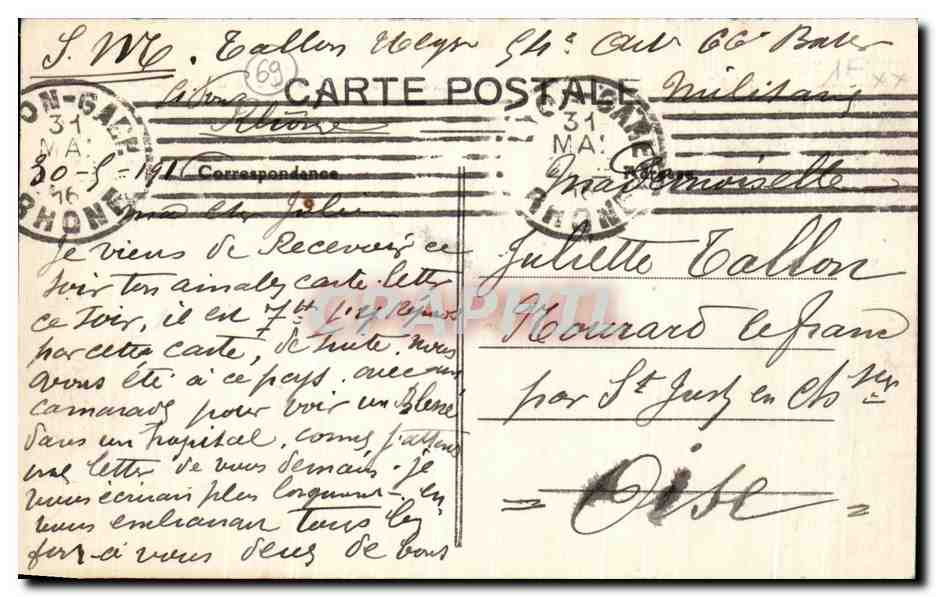 S. M. Tallon 54e 66e
69
CARTE POSTALE
Militaire
Rhône
LYON-GARE
31
MAI
16
RHONE
LYON-GARE
31
MAI
RHONE
30-5-1916 Correspondance
Mademoiselle
ma cher Julie
Juliette Tallon
je viens de Recevoir ce
soir ton aimable carte letter
ce soir, il est 7h je repond
par cette carte, de suite. nous
avons été à ce pays avec un
camarade pour voir un Blessé
dans un hopital, comme j'attend
une letter de vous demain. je
vous écrirai plus longuement. en
vous embrassant tous les
fort à vous deux de tout
Nourard le franc
par St Just en Chssée
= Oise =
CPAPHIL